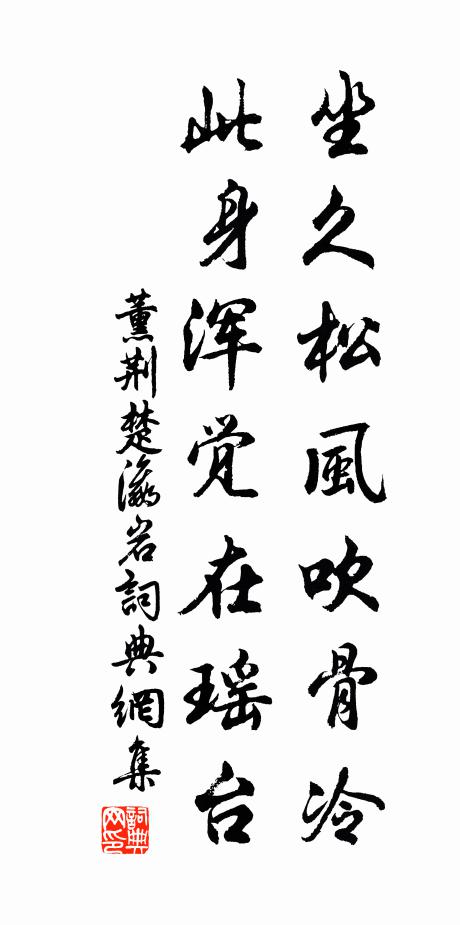 坐久松風吹骨冷
此身浑觉在瑶台
薰荆楚瀛岩詞典網集
詞典网印